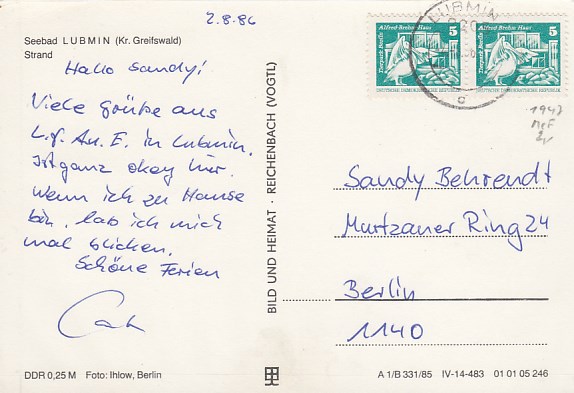 2.8.86
Seebad LUBMIN (Kr. Greifswald)
Strand
Hallo Sandy!
Viele Grüße aus
in Lubmin.
Ist ganz okay hier.
Wenn ich zu Hause
bin, laß ich mich
mal blicken.
Schöne Ferien
DDR 0,25 M Foto: Ihlow, Berlin
BILD UND HEIMAT · REICHENBACH (VOGTL)
LUBMIN
Alfred-Brehm-Haus 5
Tierpark Berlin
DEUTSCHE DEMOKRATISCHE REPUBLIK
Alfred-Brehm-Haus 5
Tierpark Berlin
DEUTSCHE DEMOKRATISCHE REPUBLIK
1947
MeF
Sandy Behrendt
Martzaner Ring 24
Berlin
1140
A 1/B 331/85 IV-14-483 01 01 05 246